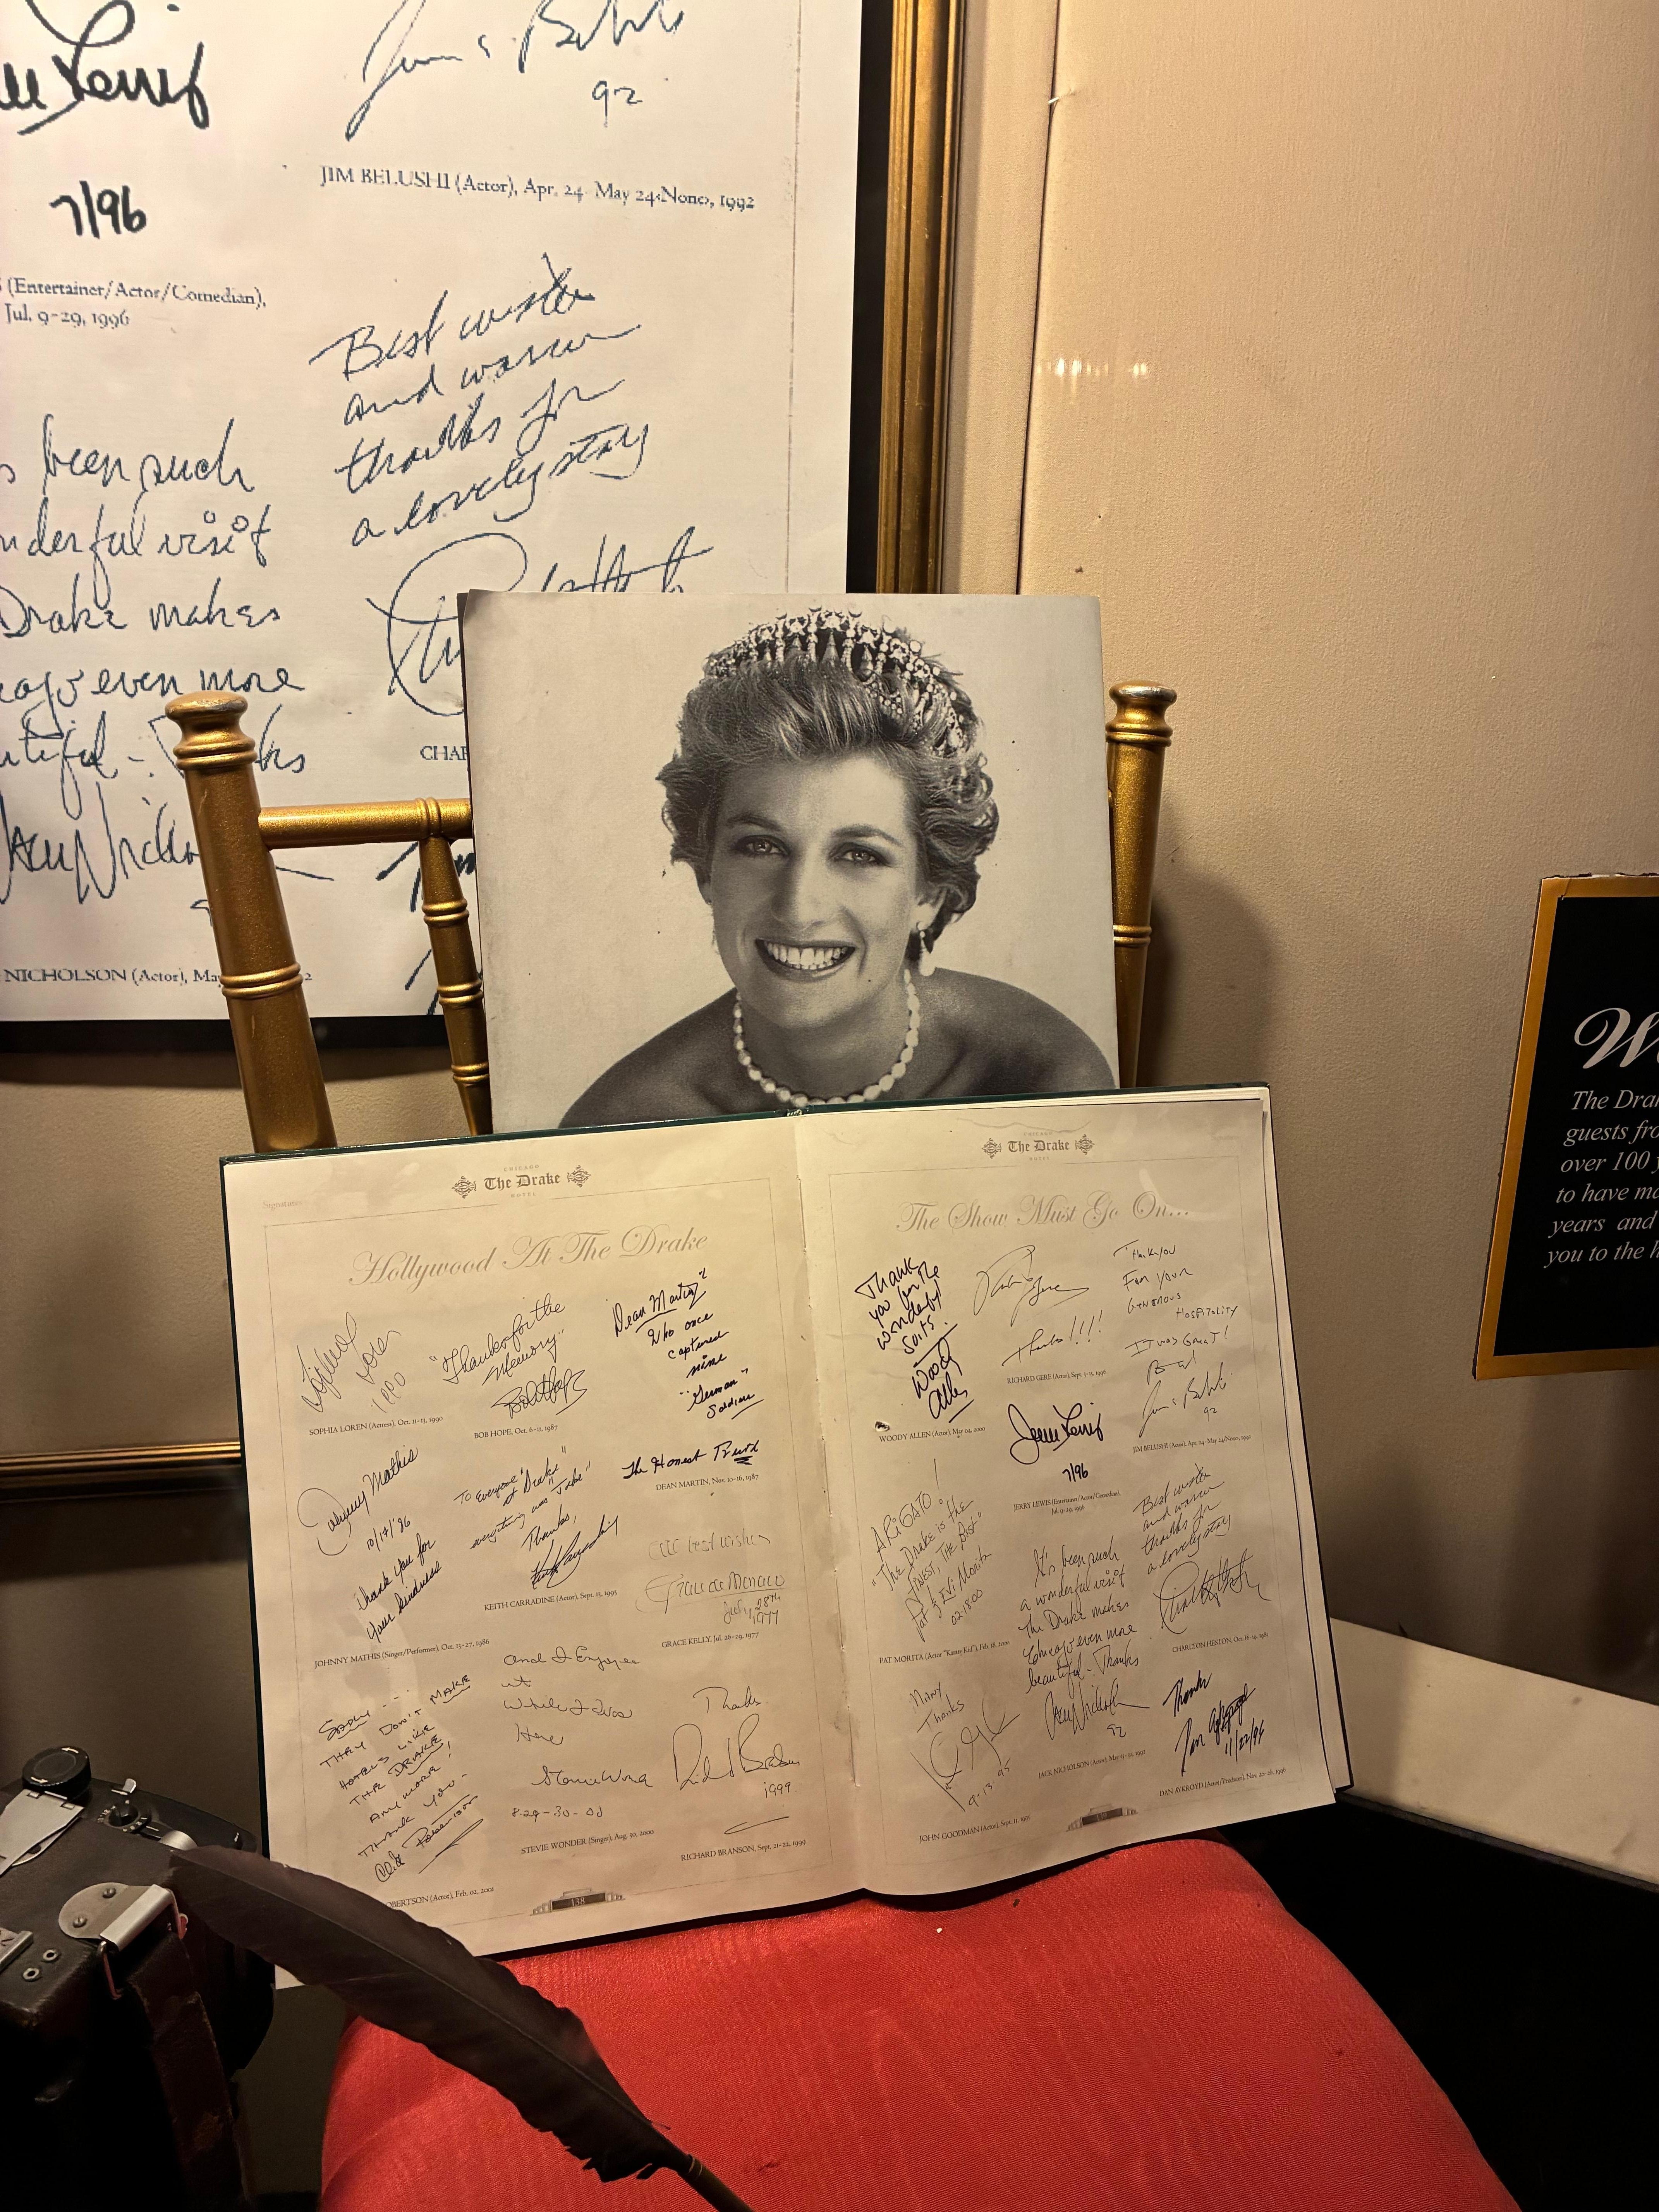 Jerry Lewis
7/96
(Entertainer/Actor/Comedian),
Jul. 9-29, 1996
92
JIM BELUSHI (Actor), Apr. 24- May 24<None>, 1992
been such
visit
Drake makes
even more
NICHOLSON (Actor),
Best wishes
and warm
thanks for
a lovely stay
The Drake
guests
over 100
to have
years and
you to the
CHICAGO
The Drake
HOTEL
Hollywood At The Drake
Sophia Loren
1990
SOPHIA LOREN (Actress), Oct. 11-13, 1990
"Thanks for the
Memory"
Bob Hope
BOB HOPE, Oct. 6-11, 1987
Dean Martin
Who once
captured
nine
"German"
Soldiers
The Honest Truth
DEAN MARTIN, Nov. 10-16, 1987
Johnny Mathis
10/17/86
Thank you for
Your kindness
JOHNNY MATHIS (Singer/Performer), Oct. 13-27, 1986
To everyone
at "Drake"
everything was "Jake"
Thanks,
Keith Carradine
KEITH CARRADINE (Actor), Sept. 13, 1995
best wishes
Grace de Monaco
July 28th
1977
GRACE KELLY, Jul. 26-29, 1977
SADLY ----
THEY DON'T MAKE
HOTELS LIKE
THE DRAKE
ANYMORE!
THANK YOU -
Cliff Robertson
OBERTSON (Actor), Feb. 02, 2001
And I Enjoyed
it
While I Was
Here
Stevie Wonder
8-29-30-00
STEVIE WONDER (Singer), Aug. 30, 2000
Thanks
Richard Branson
1999
RICHARD BRANSON, Sept. 21-22, 1999
138
CHICAGO
The Drake
HOTEL
The Show Must Go On...
Thank
you for the
wonderful
suits.
Woody
Allen
WOODY ALLEN (Actor), May 04, 2000
Richard Gere
Thanks!!!!
RICHARD GERE (Actor), Sept. 1-15, 1996
Thank you
For your
Generous
Hospitality
It was Great!
Jim Belushi
92
JIM BELUSHI (Actor), Apr. 24- May 24<None>, 1992
Jerry Lewis
7/96
JERRY LEWIS (Entertainer/Actor/Comedian),
Jul. 9-29, 1996
ARIGATO!
"The Drake is the
FINEST, THE BEST"
Pat & Evi Morita
021800
PAT MORITA (Actor "Karate Kid"), Feb. 18, 2000
It's been such
a wonderful visit
The Drake makes
Chicago even more
beautiful - Thanks
Jack Nicholson
92
JACK NICHOLSON (Actor), May 1992
Best wishes
and warm
thanks for
a lovely stay
Charlton Heston
CHARLTON HESTON, Oct. 18-19, 1981
Many
Thanks
9-13-95
JOHN GOODMAN (Actor), Sept. 13, 1995
Thanks
Dan Aykroyd
11/22/96
DAN AYKROYD (Actor/Producer), Nov. 20-26, 1996